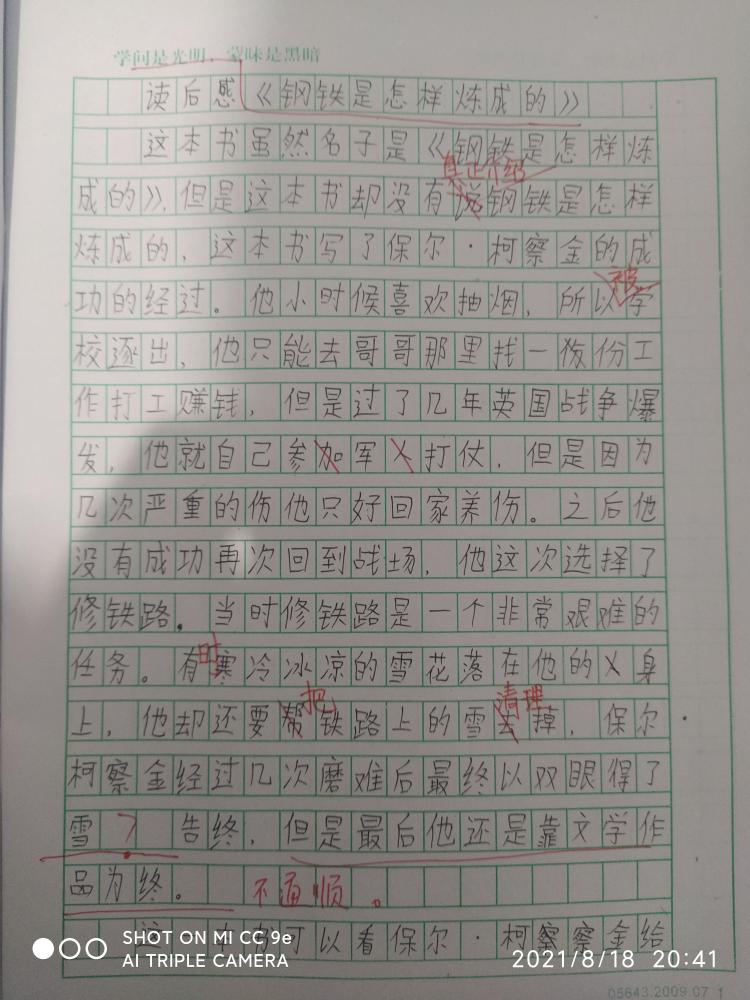 学问是光明，蒙昧是黑暗
读后感《钢铁是怎样炼成的》
这本书虽然名子是《钢铁是怎样炼
真正介绍
成的》，但是这本书却没有说钢铁是怎样
炼成的，这本书写了保尔·柯察金的成
被
功的经过。他小时候喜欢抽烟，所以学
校逐出，他只能去哥哥那里找一份工
作打工赚钱，但是过了几年英国战争爆
发，他就自己参加军打仗，但是因为
几次严重的伤他只好回家养伤。之后他
没有成功再次回到战场，他这次选择了
修铁路。当时修铁路是一个非常艰难的
时
任务。有寒冷冰凉的雪花落在他的身
把 清理
上，他却还要帮铁路上的雪去掉，保尔
柯察金经过几次磨难后最终以双眼得了
雪？告终，但是最后他还是靠文学作
品为终。 不通顺。
这一本书可以看保尔·柯察金给
SHOT ON MI CC 9e
AI TRIPLE CAMERA
2021/8/18 20:41
05643.2009.07 1